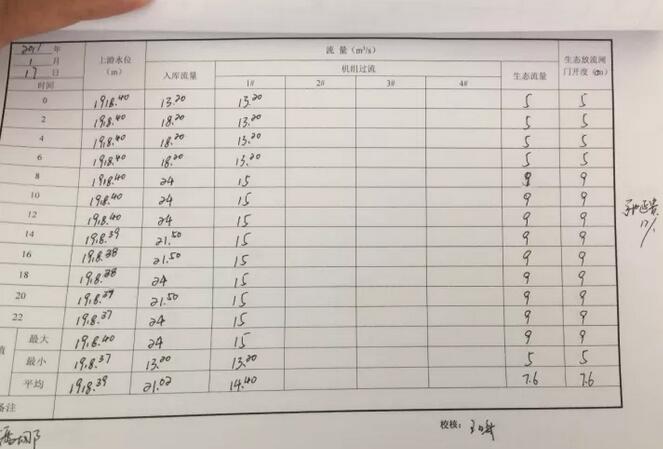 2021年 上游水位 流量(m³/s) 生态放流闸
1月 (m) 入库流量 机组过流 生态流量 门开度(cm)
17日 1# 2# 3# 4#
时间
0 1918.40 13.20 13.20 5 5
2 1918.40 18.20 13.20 5 5
4 1918.40 18.20 13.20 5 5
6 1918.40 18.20 13.20 5 5
8 1918.40 24 15 9 9
10 1918.40 24 15 9 9
12 1918.40 24 15 9 9
14 1918.39 21.50 15 9 9
16 1918.38 21.50 15 9 9
18 1918.38 24 15 9 9
20 1918.37 21.50 15 9 9
22 1918.37 24 15 9 9
值 最大 1918.40 24 15 9 9
最小 1918.37 13.20 13.20 5 5
平均 1918.39 21.02 14.40 7.6 7.6
备注
校核:
17/1